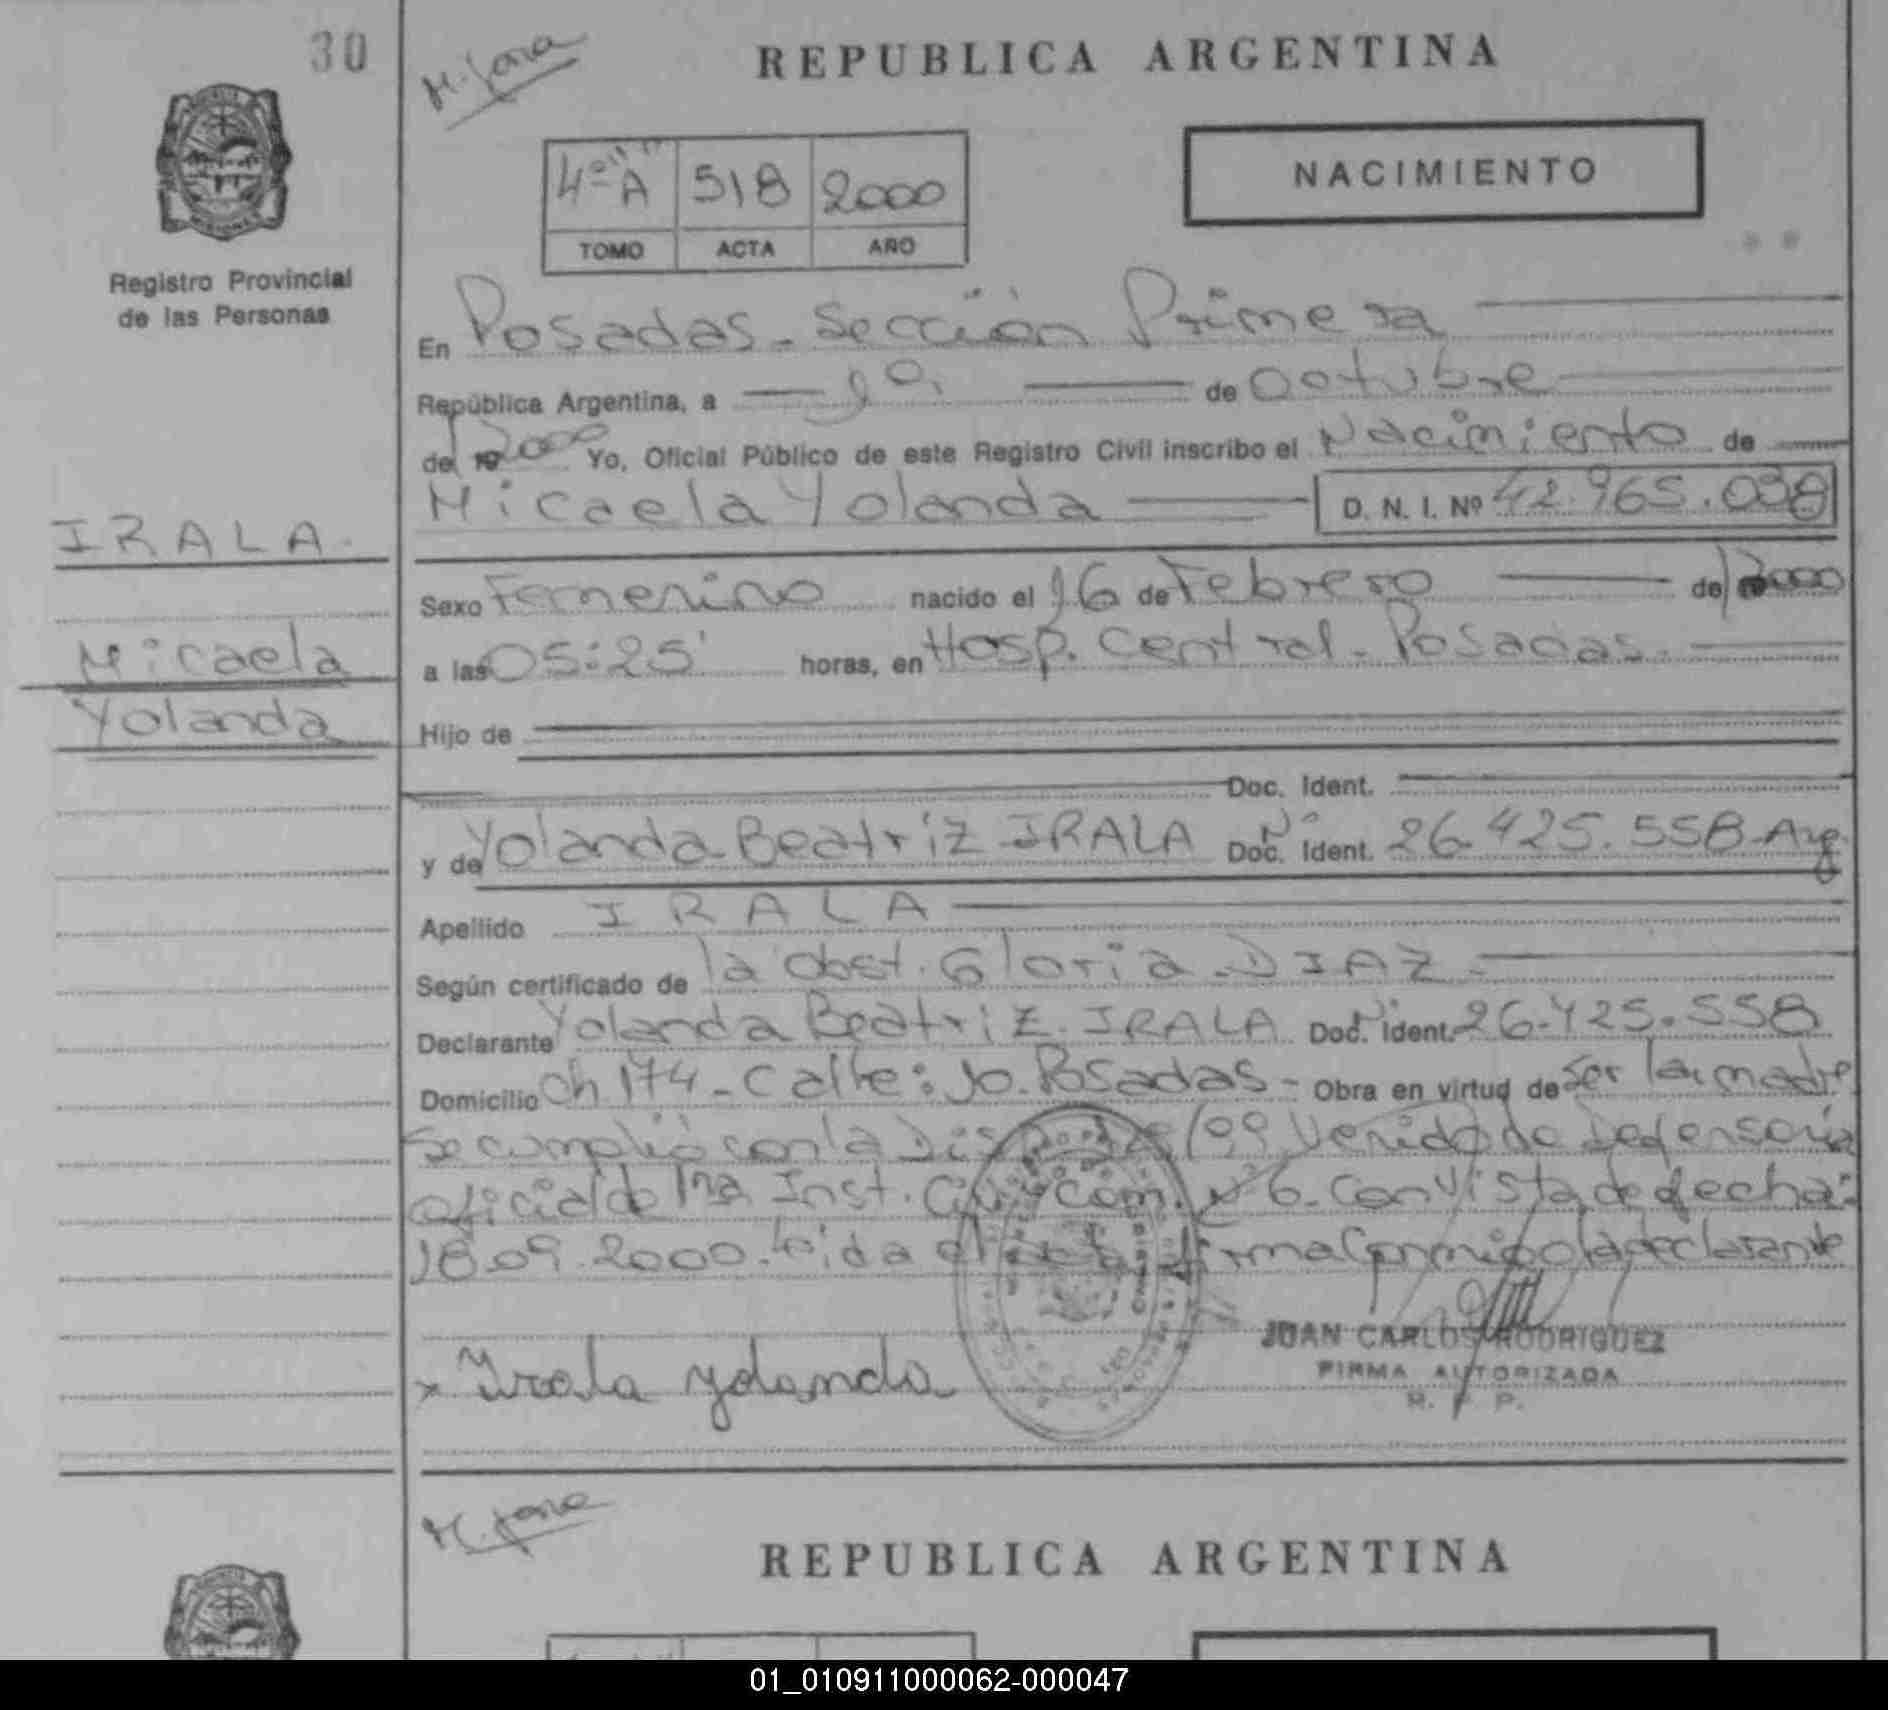 30
M. Jara
REPUBLICA ARGENTINA
4º "A" 518 2000
TOMO ACTA AÑO
NACIMIENTO
Registro Provincial
de las Personas
En Posadas - Sección Primera
República Argentina, a 1º. de Octubre
de 2000 Yo, Oficial Público de este Registro Civil inscribo el Nacimiento de
Micaela Yolanda D. N. I. Nº 42.965.038
IRALA.
Sexo Femenino nacido el 16 de Febrero de 2000
Micaela
a las 05:25' horas, en Hosp. Central - Posadas.
Yolanda
Hijo de
Doc. Ident.
y de Yolanda Beatriz IRALA Doc. Nº Ident. 26.425.558 - Arg.
Apellido IRALA
Según certificado de la obst. Gloria DIAZ
Declarante Yolanda Beatriz IRALA Doc. Nº ident. 26.425.558
Domicilio Ch 174 - Calle: Posadas - Obra en virtud de ser la madre
Se cumplió con la /99 Venido de Defensoria
oficial de 1ra Inst. Civ. y Com. Nº 6. Con Vista de fecha:
18.09.2000. Leida el acta, firma conmigo la declarante
JUAN CARLOS RODRIGUEZ
FIRMA AUTORIZADA
R. P. P.
x Irala yolanda
M. Jara
REPUBLICA ARGENTINA
01_010911000062-000047